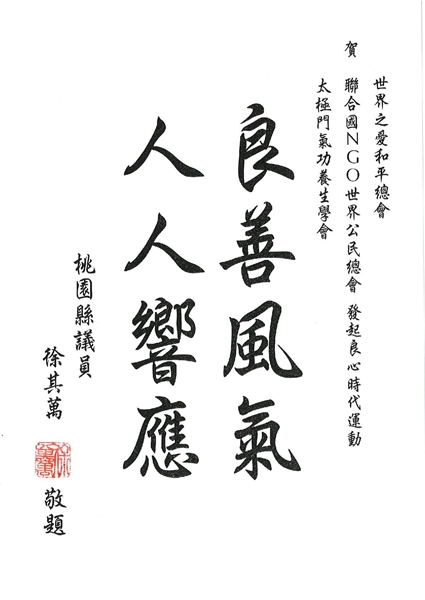 世界之愛和平總會
賀 聯合國NGO世界公民總會 發起良心時代運動
太極門氣功養生學會
良善風氣
人人響應
桃園縣議員
徐其萬 敬題